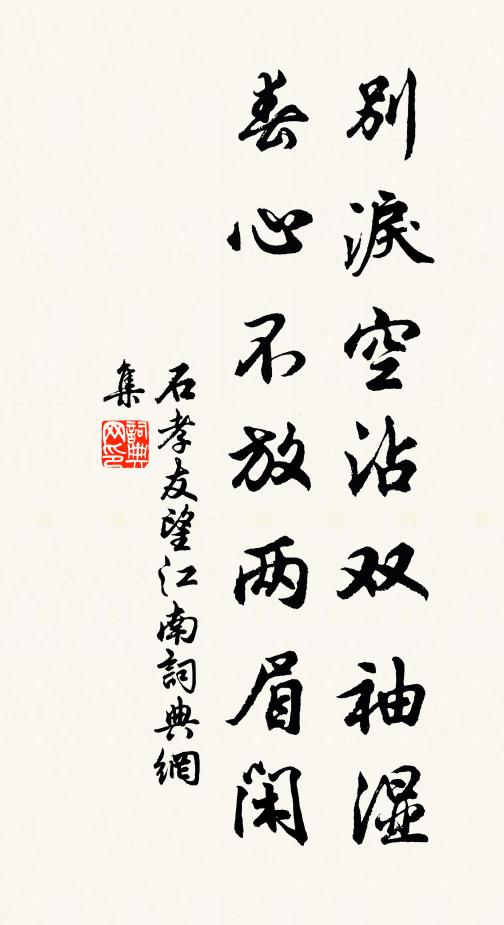 别淚空沾双袖湿
春心不放两眉閑
石孝友望江南詞典網
集
詞典网印